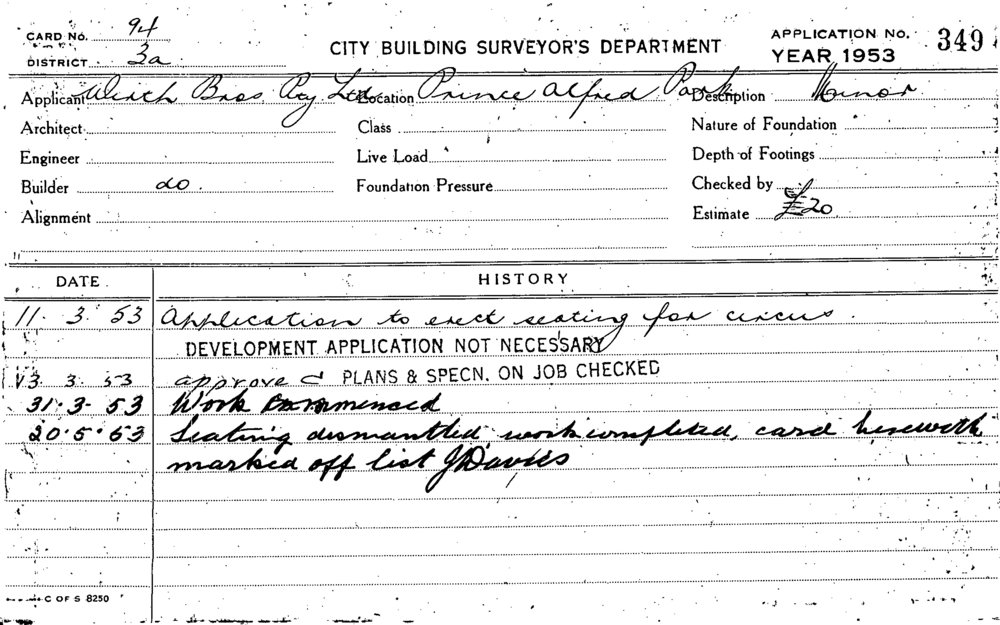 CARD No. 94
DISTRICT 3a
CITY BUILDING SURVEYOR'S DEPARTMENT
APPLICATION No. 349
YEAR 1953
Applicant Wirth Bros Pty Ltd. Location Prince Alfred Park Description Minor
Architect Class Nature of Foundation
Engineer Live Load Depth of Footings
Builder do. Foundation Pressure Checked by
Alignment Estimate £20
DATE HISTORY
11. 3. 53 Application to erect seating for circus.
DEVELOPMENT APPLICATION NOT NECESSARY
13. 3. 53 approved PLANS & SPECN. ON JOB CHECKED
31. 3. 53 Work Commenced
20. 5. 53 Seating dismantled, work completed, card herewith
marked off list J Davies
C OF S 8250